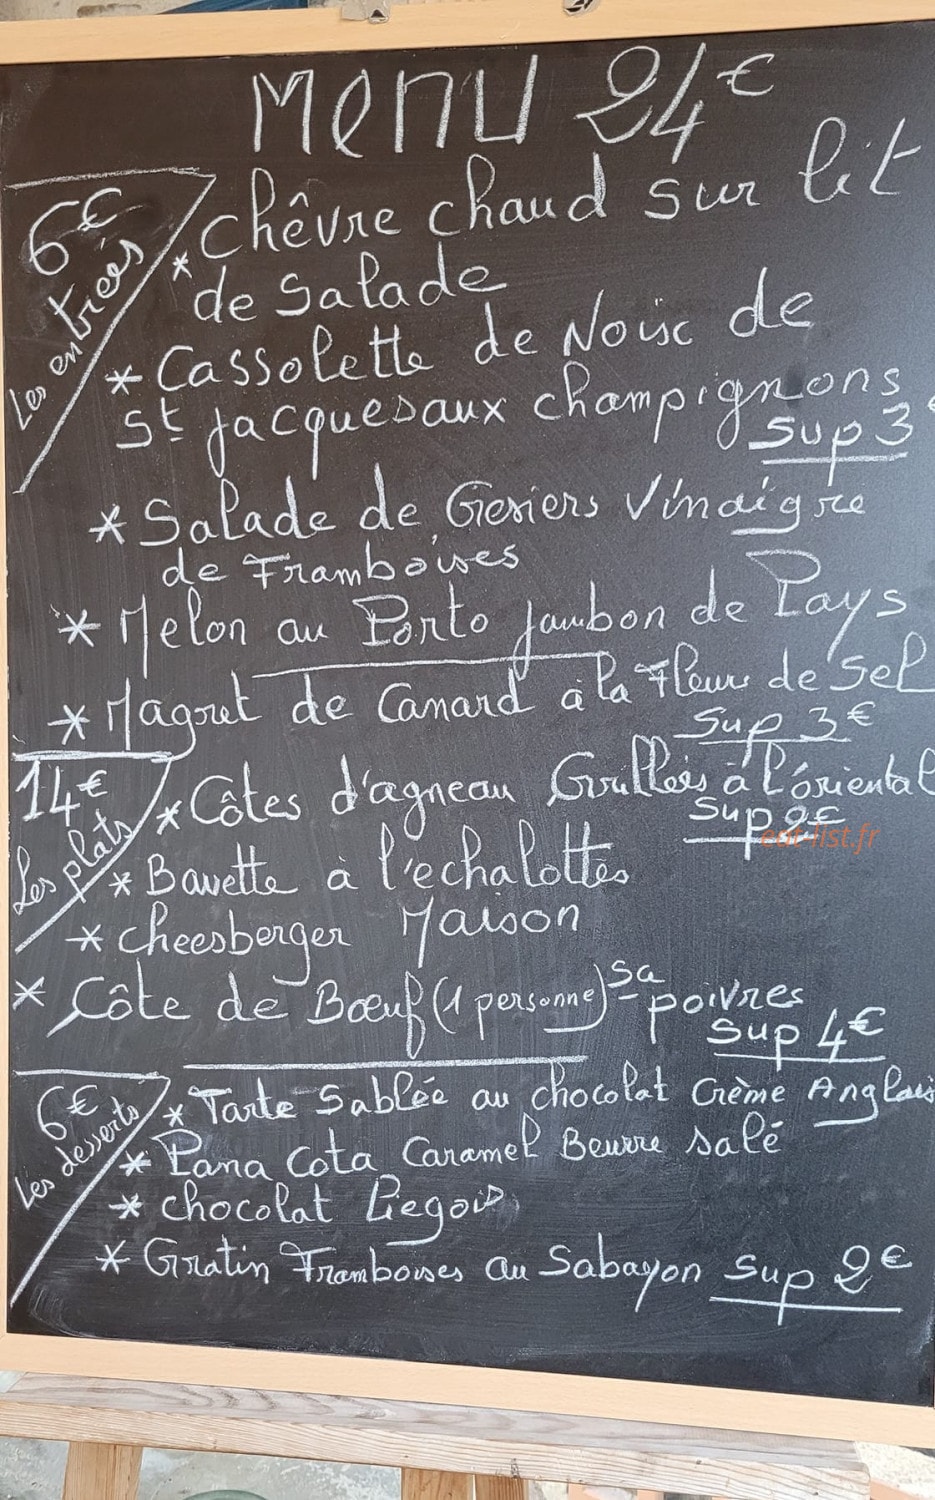 MENU 24€
6€
Les entrées
* Chêvre chaud sur lit
de Salade
* Cassolette de Noix de
St Jacques aux champignons
Sup 3€
* Salade de Gesiers Vinaigre
de Framboises
* Melon au Porto Jambon de Pays
* Magret de Canard à la Fleur de Sel
Sup 3€
14€
Les plats
* Côtes d'agneau Grillées à l'oriental
Sup 2€
eat-list.fr
* Bavette à l'echalottes
* Cheesberger Maison
* Côte de Bœuf (1 personne) Sa poivres
Sup 4€
6€
Les desserts
* Tarte Sablée au chocolat Crème Anglais
* Pana Cota Caramel Beurre salé
* Chocolat Liegois
* Gratin Framboises au Sabayon Sup 2€